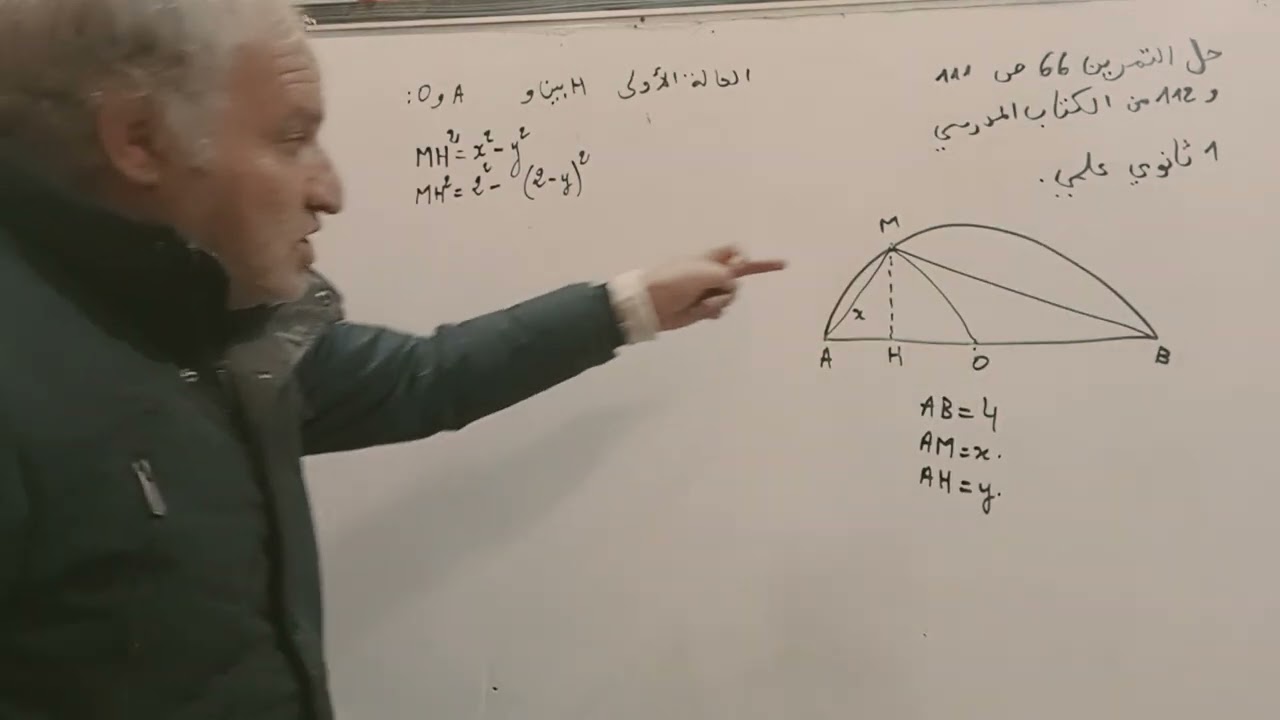 حل التمرين 66 ص 111
و 112 من الكتاب المدرسي
1 ثانوي علمي.
الحالة الأولى H بين A و O:
MH² = x² - y²
MH² = 2² - (2-y)²
M
x
A H O B
AB = 4
AM = x.
AH = y.